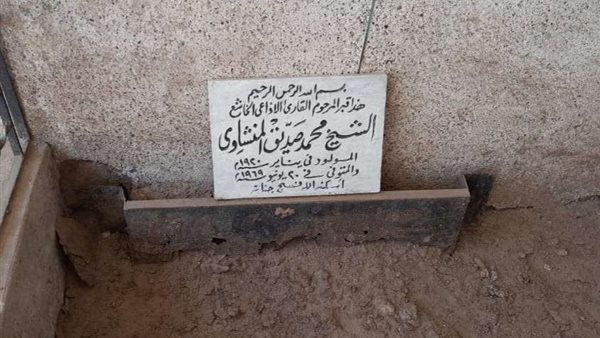 بسم الله الرحمن الرحيم
هذا قبر المرحوم القارئ الإذاعى الخاشع
الشيخ محمد صديق المنشاوى
المولود فى يناير ١٩٢٠م
والمتوفى فى ٢٠ يونيو ١٩٦٩م
أسكنه الله فسيح جناته